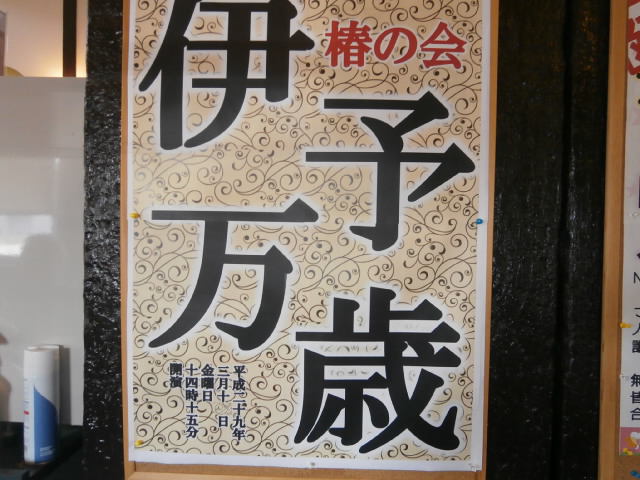 椿の会
伊予万歳
平成二十九年
三月十日
金曜日
十四時十五分
開演